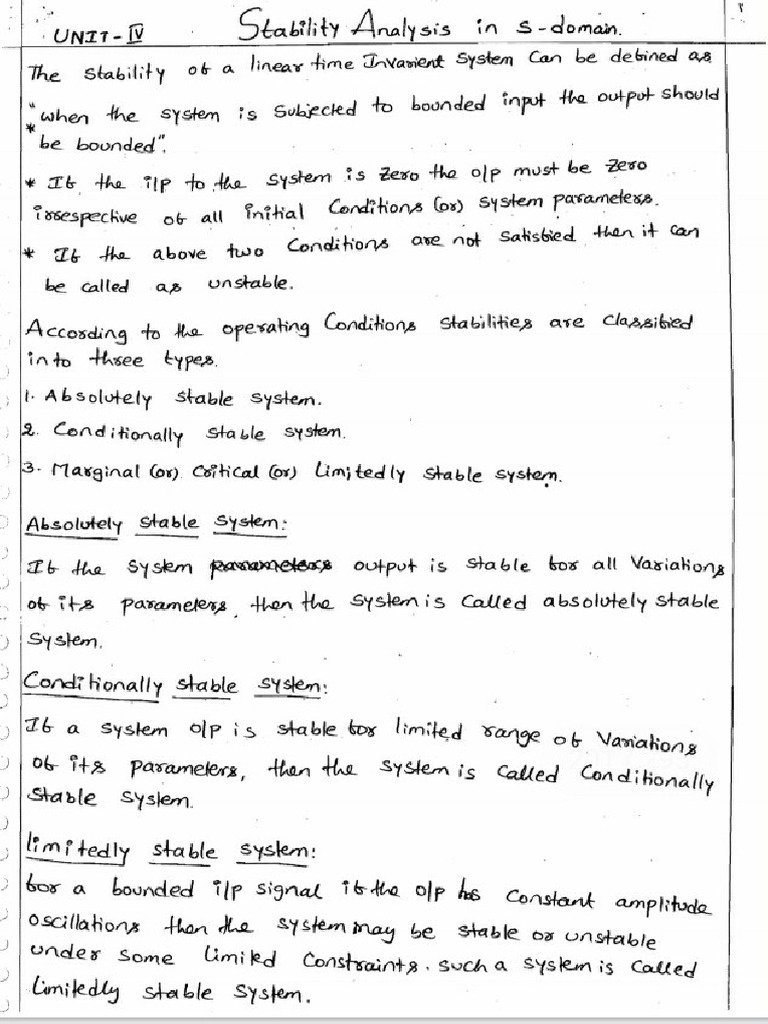 UNIT-IV Stability Analysis in s-domain. 1
The stability of a linear time Invarient system can be defined as
* "when the system is subjected to bounded input the output should
be bounded".
* If the i/p to the system is zero the o/p must be zero
irrespective of all initial Conditions (or) system parameters.
* If the above two Conditions are not satisfied then it can
be called as unstable.
According to the operating Conditions stabilities are classified
into three types.
1. Absolutely stable system.
2. Conditionally stable system.
3. Marginal (or) critical (or) Limitedly stable system.
Absolutely stable system:
If the system parameters output is stable for all Variations
of its parameters, then the system is called absolutely stable
system.
Conditionally stable system:
If a system o/p is stable for limited range of Variations
of its parameters, then the system is called Conditionally
stable system.
limitedly stable system:
for a bounded i/p signal if the o/p has constant amplitude
oscillations then the system may be stable or unstable
under some limited Constraints. such a system is called
limitedly stable system.